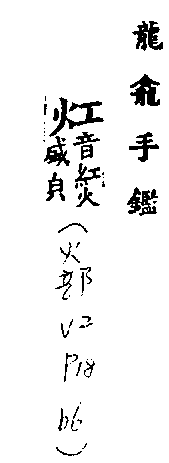 龍龕手鑑
灴音紅火
盛皃
(火部 V2 P18 b6)